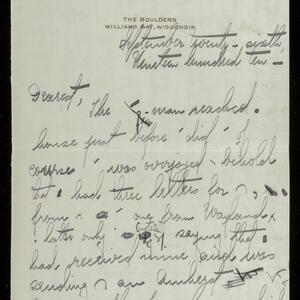 THE BOULDERS
WILLIAMS BAY, WISCONSIN
September twenty-sixth,
Nineteen hundred ten—
Dearest, The -man reached
house first before "did" I, of
course I was overjoyed to behold
that I had three letters for
from a one from Wayland,
latter only saying that
had received mine and was
sending an Amherst